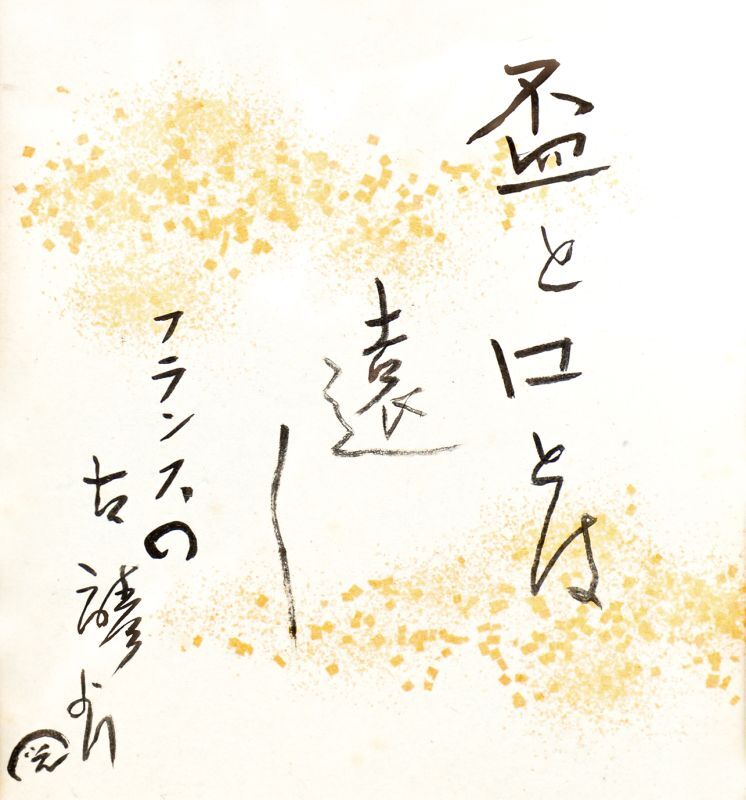 盃と口とは
遠し
フランスの
古諺より